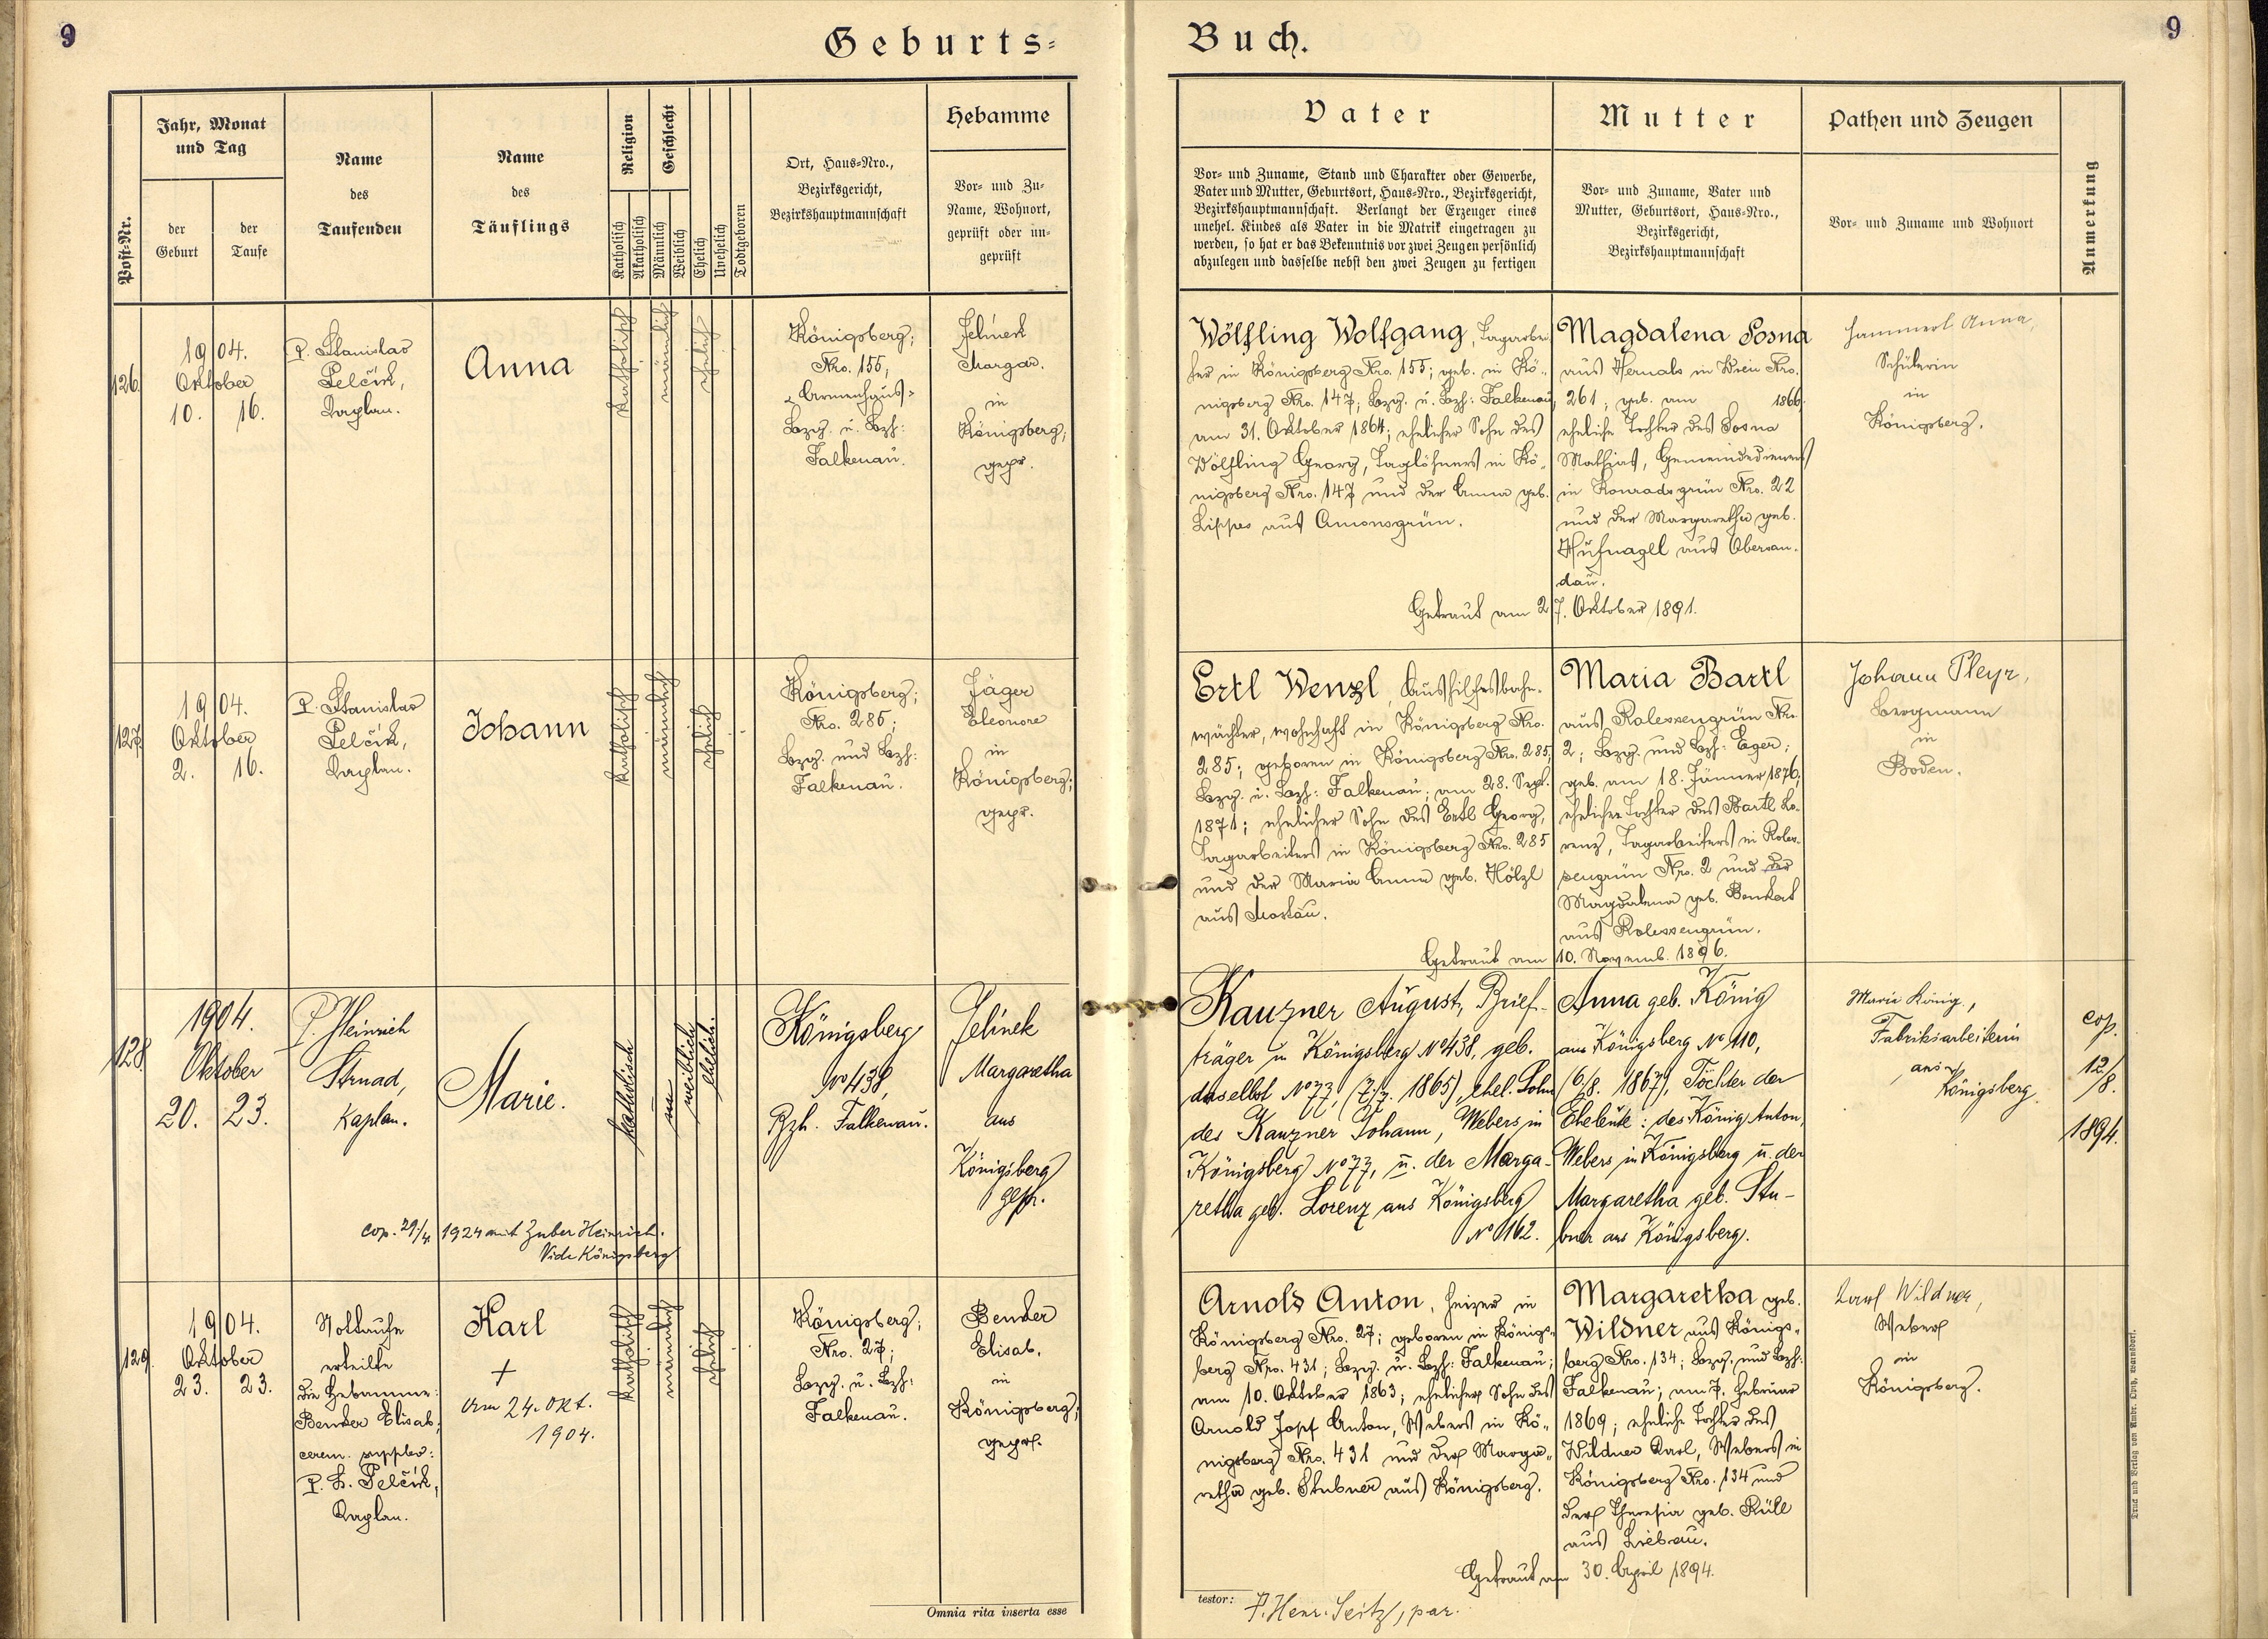 9
Geburts-
Jahr, Monat
und Tag
Post-Nr.
der
Geburt
der
Taufe
Name
des
Taufenden
Name
des
Täuflings
Religion
Katholisch
Akatholisch
Geschlecht
Männlich
Weiblich
Ehelich
Unehelich
Todtgeboren
Ort, Haus-Nro.,
Bezirksgericht,
Bezirkshauptmannschaft
Hebamme
Vor- und Zu-
Name, Wohnort,
geprüft oder un-
geprüft
126.
1904.
Oktober
10. 16.
P. Stanislav
Pelčik,
Kaplan.
Anna
katholisch
männlich
ehelich
Königsberg;
Nro. 155,
"Armenhaus"
Bzg. u. Bzh:
Falkenau.
Jelinek
Margar.
in
Königsberg;
gepr.
127.
1904.
Oktober
2. 16.
P. Stanislav
Pelčik,
Kaplan.
Johann
katholisch
männlich
ehelich
Königsberg;
Nro. 285;
Bzg. und Bzh:
Falkenau.
Jäger
Eleonore
in
Königsberg;
gepr.
128.
1904.
Oktober
20. 23.
P. Heinrich
Strnad,
Kaplan.
Marie.
katholisch
weiblich
ehelich.
Königsberg
No 438,
Bzh. Falkenau.
Jelinek
Margaretha
aus
Königsberg
gepr.
cop. 29./4. 1924 mit Zuber Heinrich.
Vide Königsberg
129.
1904.
Oktober
23. 23.
Nottaufe
erteilte
die Hebamme:
Bender Elisab;
cerem. supplev:
P. S. Pelčik,
Kaplan.
Karl
+
Am 24. Okt.
1904.
katholisch
männlich
ehelich
Königsberg;
Nro. 27;
Bzg. u. Bzh:
Falkenau.
Bender
Elisab.
in
Königsberg;
gepr.
Omnia rita inserta esse
Buch.
9
Vater
Vor- und Zuname, Stand und Charakter oder Gewerbe,
Vater und Mutter, Geburtsort, Haus-Nro., Bezirksgericht,
Bezirkshauptmannschaft. Verlangt der Erzeuger eines
unehel. Kindes als Vater in die Matrik eingetragen zu
werden, so hat er das Bekenntnis vor zwei Zeugen persönlich
abzulegen und dasselbe nebst den zwei Zeugen zu fertigen
Mutter
Vor- und Zuname, Vater und
Mutter, Geburtsort, Haus-Nro.,
Bezirksgericht,
Bezirkshauptmannschaft
Pathen und Zeugen
Vor- und Zuname und Wohnort
Anmerkung
Wölfling Wolfgang, Tagarbei-
ter in Königsberg Nro. 155; geb. in Kö-
nigsberg Nro. 147; Bzg. u. Bzh: Falkenau,
am 31. Oktober 1864; ehelicher Sohn des
Wölfling Georg, Taglöhners in Kö-
nigsberg Nro. 147 und der Anna geb.
Lippes aus Amonsgrün.
Magdalena Sosna
aus Hernals in Wien Nro.
261; geb. am 1866;
eheliche Tochter des Sosna
Mathias, Gemeindedieners
in Konradsgrün Nro. 22
und der Margaretha geb.
Hufnagel aus Obersan-
dau.
Getraut am 27. Oktober 1891.
Hammerl Anna,
Schülerin
in
Königsberg.
Ertl Wenzl, Aushilfsbahn-
wächter, wohnhaft in Königsberg Nro.
285; geboren in Königsberg Nro. 285;
Bzg. u. Bzh: Falkenau; am 28. Sept.
1871; ehelicher Sohn des Ertl Georg,
Tagarbeiters in Königsberg Nro. 285
und der Maria Anna geb. Hölzl
aus Mostau.
Maria Bartl
aus Rolessengrün Nro.
2; Bzg. und Bzh: Eger;
geb. am 18. Jänner 1876;
eheliche Tochter des Bartl Lo-
renz, Tagarbeiters in Roles-
sengrün Nro. 2 und der
Magdalena geb. Benkert
aus Rolessengrün.
Getraut am 10. Novemb. 1896.
Johann Pleyr,
Bergmann
in
Boden.
Kauzner August, Brief-
träger in Königsberg No 438, geb.
daselbst No 77, (7./7. 1865), ehel. Sohn
des Kauzner Johann, Webers in
Königsberg No 77, u. der Marga-
retha geb. Lorenz aus Königsberg
No 162.
Anna geb. König
aus Königsberg No 110,
(6./8. 1867), Tochter der
Eheleute: des König Anton,
Webers in Königsberg u. der
Margaretha geb. Stu-
bner aus Königsberg.
Marie König,
Fabriksarbeiterin
aus
Königsberg.
cop.
12./
8.
1894.
Arnold Anton, Heizer in
Königsberg Nro. 27; geboren in Königs-
berg Nro. 431; Bzg. u. Bzh: Falkenau;
am 10. Oktober 1863; ehelicher Sohn des
Arnold Josef Anton, Webers in Kö-
nigsberg Nro. 431 und der Marga-
retha geb. Stubner aus Königsberg.
Margaretha geb.
Wildner aus Königs-
berg Nro. 134; Bzg. und Bzh:
Falkenau; am 7. Februar
1869; eheliche Tochter des
Wildner Karl, Webers in
Königsberg Nro. 134 und
der Theresia geb. Rüll
aus Liebau.
Getraut am 30. April 1894.
Karl Wildner,
Weber
in
Königsberg.
testor: P. Henr. Seitz, par.
Druck und Verlag von Ambr. Opitz, Warnsdorf.